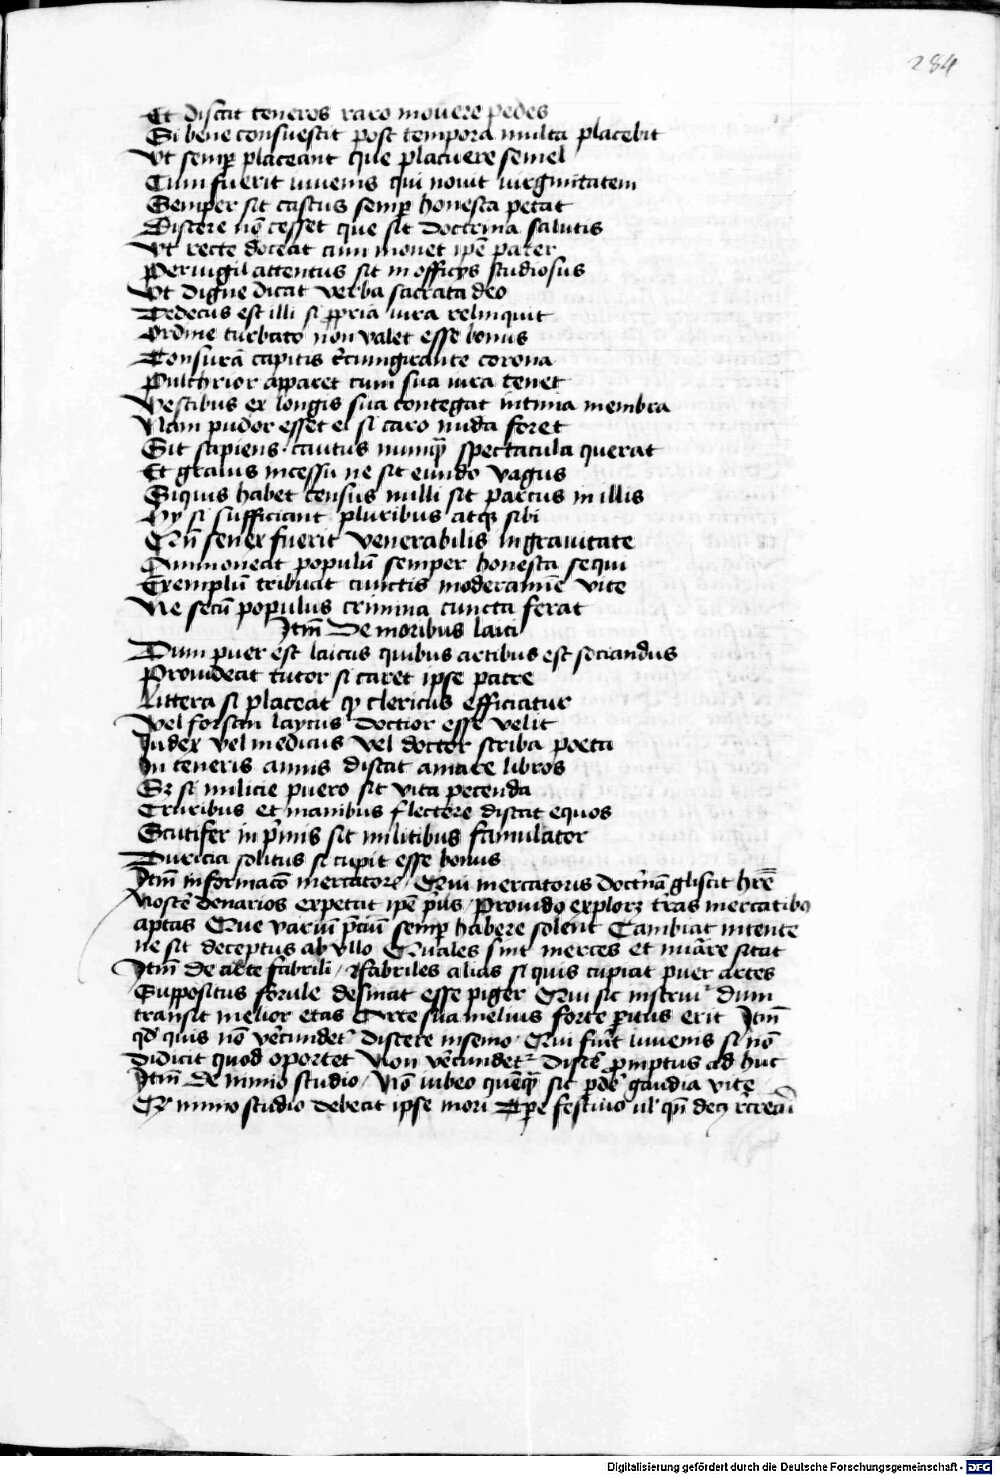 284
Et discat teneros raro movere pedes
Si bene consuescit post tempora multa placebit
Ut semp placeant que placuere semel
Cum fuerit iuvenis qui novit virginitatem
Semper sit castus semp honesta petat
Discere nō cesset que sit doctrina salutis
Ut recte doceat cum monet ipē pater
Pervigil attentus sit in officiis studiosus
Ut digne dicat verba sacrata deo
Dedecus est illi si ppria iura relinquit
Ordine turbato non valet esse bonus
Tonsurā capitis circumgirante corona
Pulchrior apparet cum sua iura tenet
Vestibus ex longis sua contegat intima membra
Nam pudor esset ei si caro nuda foret
Sit sapiens cautus numqȝ spectacula querat
Et gravis incessu ne sit eundo vagus
Siquis habet census nulli sit parcus in illis
Hy si sufficiant pluribus atqȝ sibi
Cū senex fuerit venerabilis in gravitate
Ammoneat populū semper honesta sequi
Exemplū tribuat cunctis moderamīe vite
Ne secū populus crimina cuncta ferat
Itm De moribus laici
Dum puer est laicus quibus artibus est sociandus
Provideat tutor si caret ipse patre
Littera si placeat qȝ clericus efficiatur
Vel forsan laycus doctior esse velit
Iudex vel medicus vel doctor scriba poeta
In teneris annis discat amare libros
Sȝ si milicie puero sit vita petenda
Cruribus et manibus flectere discat equos
Scutifer in pmis sit militibus famulator
Duricia solitus si cupit esse bonus
Itm informacō mercatorū Qui mercatoris doctnā gliscit hrē
Noscē denarios expetat ipē pus Provido explorȝ tras mercatibȝ
aptas Que variū pciū semp habere solent Cambiat intente
ne sit deceptus ab ullo Quales sint merces et sitat
Itm De arte fabrili Fabriles alias si quis cupiat puer artes
Suppositus ferule desinat esse piger Qui sic instruit dum
transit melior etas Arte sua melius forte pitus erit Itm
qd quis nō vecundet discere in senio Qui fuit iuvenis si nō
didicit quod oportet Non vecundet disce pmptus ad huc
Itm De nimio studio Nō iubeo quēqȝ sic pde gaudia vite
Ex nimio studio debeat ipse mori festivo vl qn
Digitalisierung gefördert durch die Deutsche Forschungsgemeinschaft - DFG